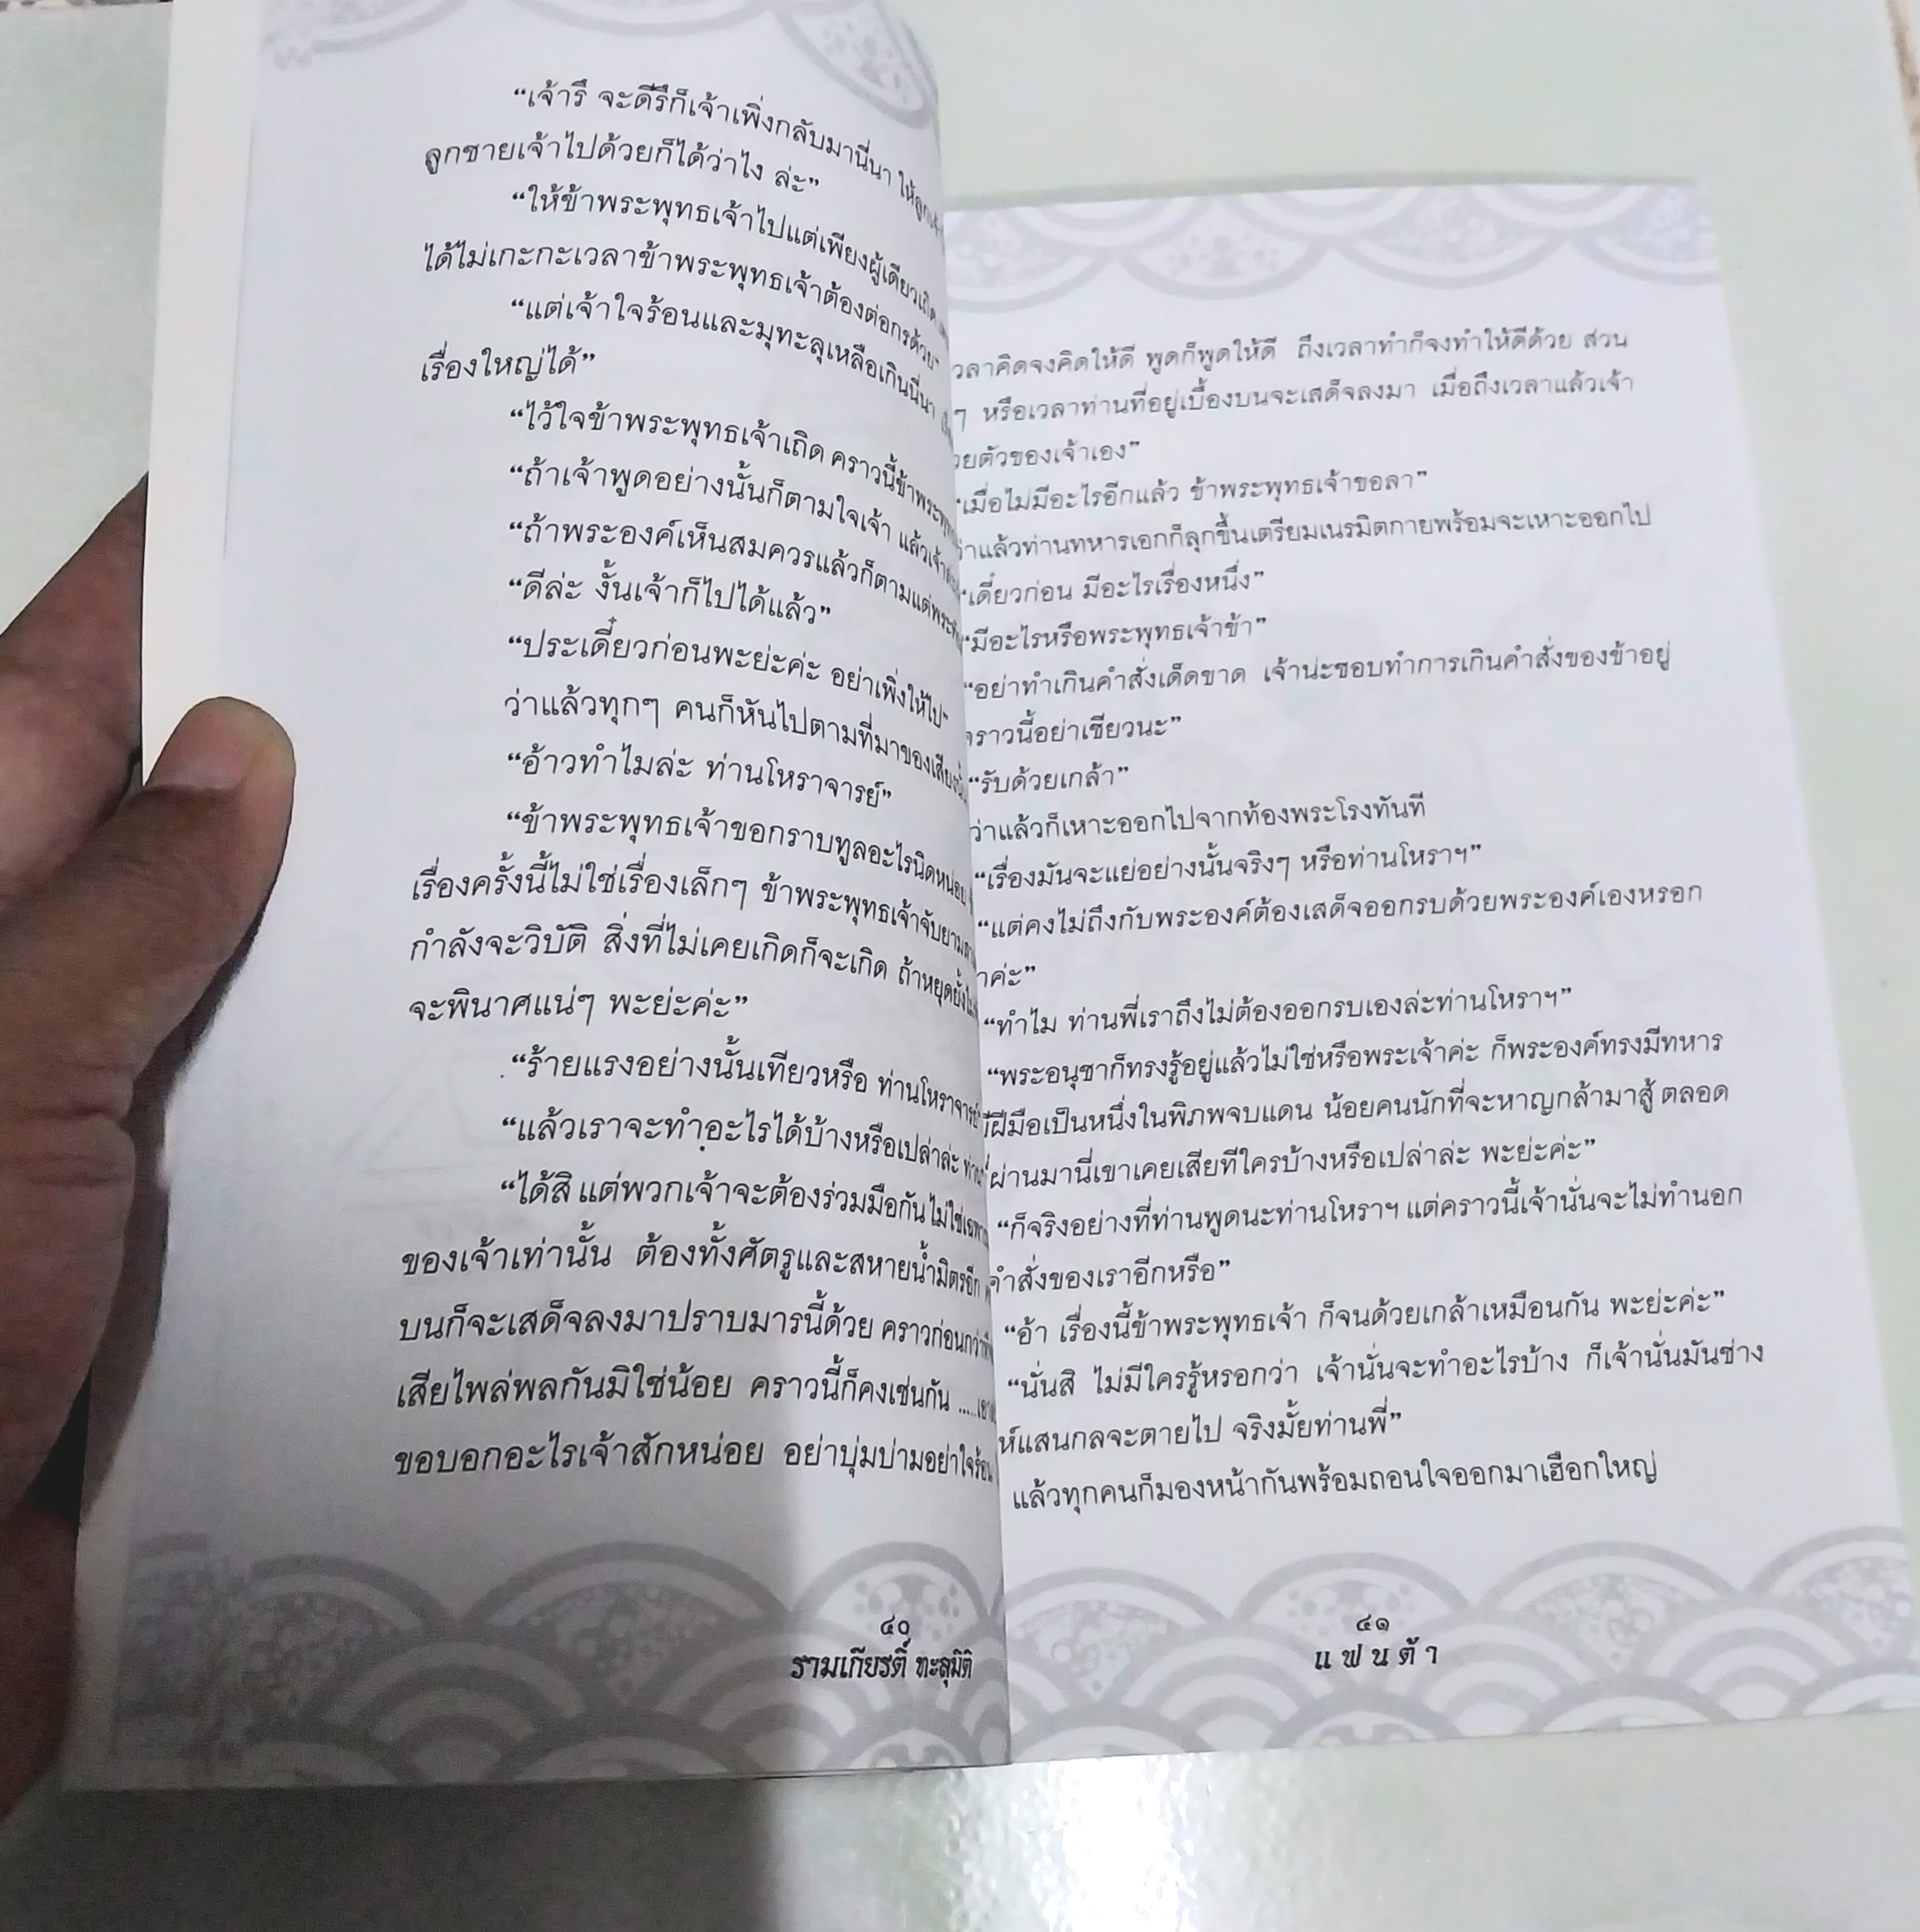 “เจ้ารึ จะดีรึก็เจ้าเพิ่งกลับมานี่นา
ลูกชายเจ้าไปด้วยก็ได้ว่าไง ล่ะ”
“ให้ข้าพระพุทธเจ้าไปแต่เพียงผู้เดียวเถิด
ได้ไม่เกะกะเวลาข้าพระพุทธเจ้าต้องต่อกรด้วย”
“แต่เจ้าใจร้อนและมุทะลุเหลือเกินนี่นา
เรื่องใหญ่ได้”
“ไว้ใจข้าพระพุทธเจ้าเถิด คราวนี้
“ถ้าเจ้าพูดอย่างนั้นก็ตามใจเจ้า
“ถ้าพระองค์เห็นสมควรแล้วก็ตามแต่
“ดีล่ะ งั้นเจ้าก็ไปได้แล้ว”
“ประเดี๋ยวก่อนพะย่ะค่ะ อย่าเพิ่งให้ไป”
ว่าแล้วทุกๆ คนก็หันไปตามที่มาของเสียง
“อ้าวทำไมล่ะ ท่านโหราจารย์”
“ข้าพระพุทธเจ้าขอกราบทูลอะไรนิดหน่อย
เรื่องครั้งนี้ไม่ใช่เรื่องเล็กๆ ข้าพระพุทธเจ้าจับยาม
กำลังจะวิบัติ สิ่งที่ไม่เคยเกิดก็จะเกิด ถ้าหยุดยั้ง
จะพินาศแน่ๆ พะย่ะค่ะ”
“ร้ายแรงอย่างนั้นเทียวหรือ ท่านโหราจารย์
“แล้วเราจะทำอะไรได้บ้างหรือเปล่าล่ะ
“ได้สิ แต่พวกเจ้าจะต้องร่วมมือกัน
ของเจ้าเท่านั้น ต้องทั้งศัตรูและสหายน้ำมิตรอีก
บนก็จะเสด็จลงมาปราบมารนี้ด้วย
เสียไพล่พลกันมิใช่น้อย คราวนี้ก็คงเช่นกัน .....
ขอบอกอะไรเจ้าสักหน่อย อย่าบุ่มบ่ามอย่าใจร้อน
๔๐
รามเกียรติ์ ทะลุมิติ
เวลาคิดจงคิดให้ดี พูดก็พูดให้ดี ถึงเวลาทำก็จงทำให้ดีด้วย ส่วน
หรือเวลาท่านที่อยู่เบื้องบนจะเสด็จลงมา เมื่อถึงเวลาแล้วเจ้า
ตัวของเจ้าเอง”
“เมื่อไม่มีอะไรอีกแล้ว ข้าพระพุทธเจ้าขอลา”
ว่าแล้วท่านทหารเอกก็ลุกขึ้นเตรียมเนรมิตกายพร้อมจะเหาะออกไป
“เดี๋ยวก่อน มีอะไรเรื่องหนึ่ง”
“มีอะไรหรือพระพุทธเจ้าข้า”
“อย่าทำเกินคำสั่งเด็ดขาด เจ้าน่ะชอบทำการเกินคำสั่งของข้าอยู่
คราวนี้อย่าเชียวนะ”
“รับด้วยเกล้า”
ว่าแล้วก็เหาะออกไปจากท้องพระโรงทันที
“เรื่องมันจะแย่อย่างนั้นจริงๆ หรือท่านโหราฯ”
“แต่คงไม่ถึงกับพระองค์ต้องเสด็จออกรบด้วยพระองค์เองหรอก
ค่ะ”
“ทำไม ท่านพี่เราถึงไม่ต้องออกรบเองล่ะท่านโหราฯ”
“พระอนุชาก็ทรงรู้อยู่แล้วไม่ใช่หรือพระเจ้าค่ะ ก็พระองค์ทรงมีทหาร
ฝีมือเป็นหนึ่งในพิภพจบแดน น้อยคนนักที่จะหาญกล้ามาสู้ ตลอด
ผ่านมานี่เขาเคยเสียทีใครบ้างหรือเปล่าล่ะ พะย่ะค่ะ”
“ก็จริงอย่างที่ท่านพูดนะท่านโหราฯ แต่คราวนี้เจ้านั่นจะไม่ทำนอก
คำสั่งของเราอีกหรือ”
“อ้า เรื่องนี้ข้าพระพุทธเจ้า ก็จนด้วยเกล้าเหมือนกัน พะย่ะค่ะ”
“นั่นสิ ไม่มีใครรู้หรอกว่า เจ้านั่นจะทำอะไรบ้าง ก็เจ้านั่นมันช่าง
แสนกลจะตายไป จริงมั้ยท่านพี่”
แล้วทุกคนก็มองหน้ากันพร้อมถอนใจออกมาเฮือกใหญ่
๔๑
แฟนต้า